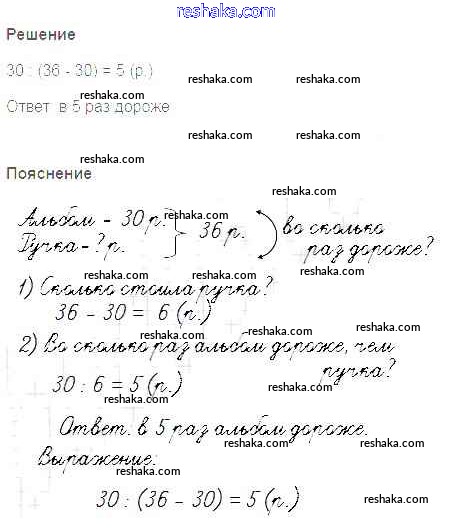 reshaka.com
Решение
30 : (36 - 30) = 5 (р.)
reshaka.com reshaka.com
reshaka.com
Ответ в 5 раз дороже
reshaka.com reshaka.com
reshaka.com
Пояснение
reshaka.com reshaka.com
Альбом - 30 р. } 36 р. во сколько
Ручка - ? р. раз дороже?
reshaka.com reshaka.com reshaka.com
1) Сколько стоила ручка?
36 - 30 = 6 (р.)
reshaka.com reshaka.com
2) Во сколько раз альбом дороже, чем
ручка?
reshaka.com reshaka.com
30 : 6 = 5 (р.)
reshaka.com
Ответ: в 5 раз альбом дороже.
reshaka.com reshaka.com
Выражение:
reshaka.com
30 : (36 - 30) = 5 (р.)
reshaka.com